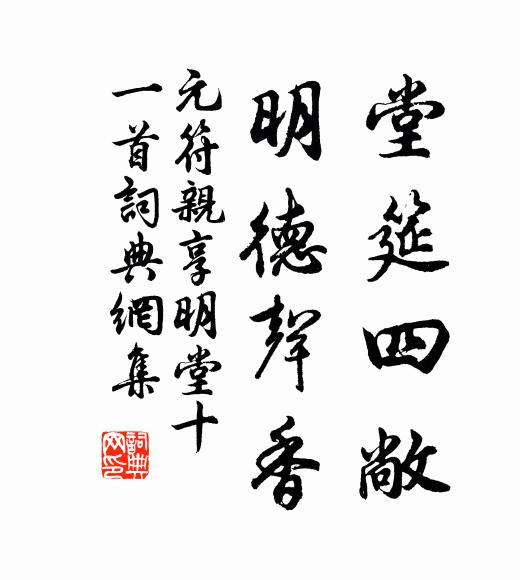 堂筵四敞
明德聲香
元符親享明堂十
一首詞典網集
詞典網印